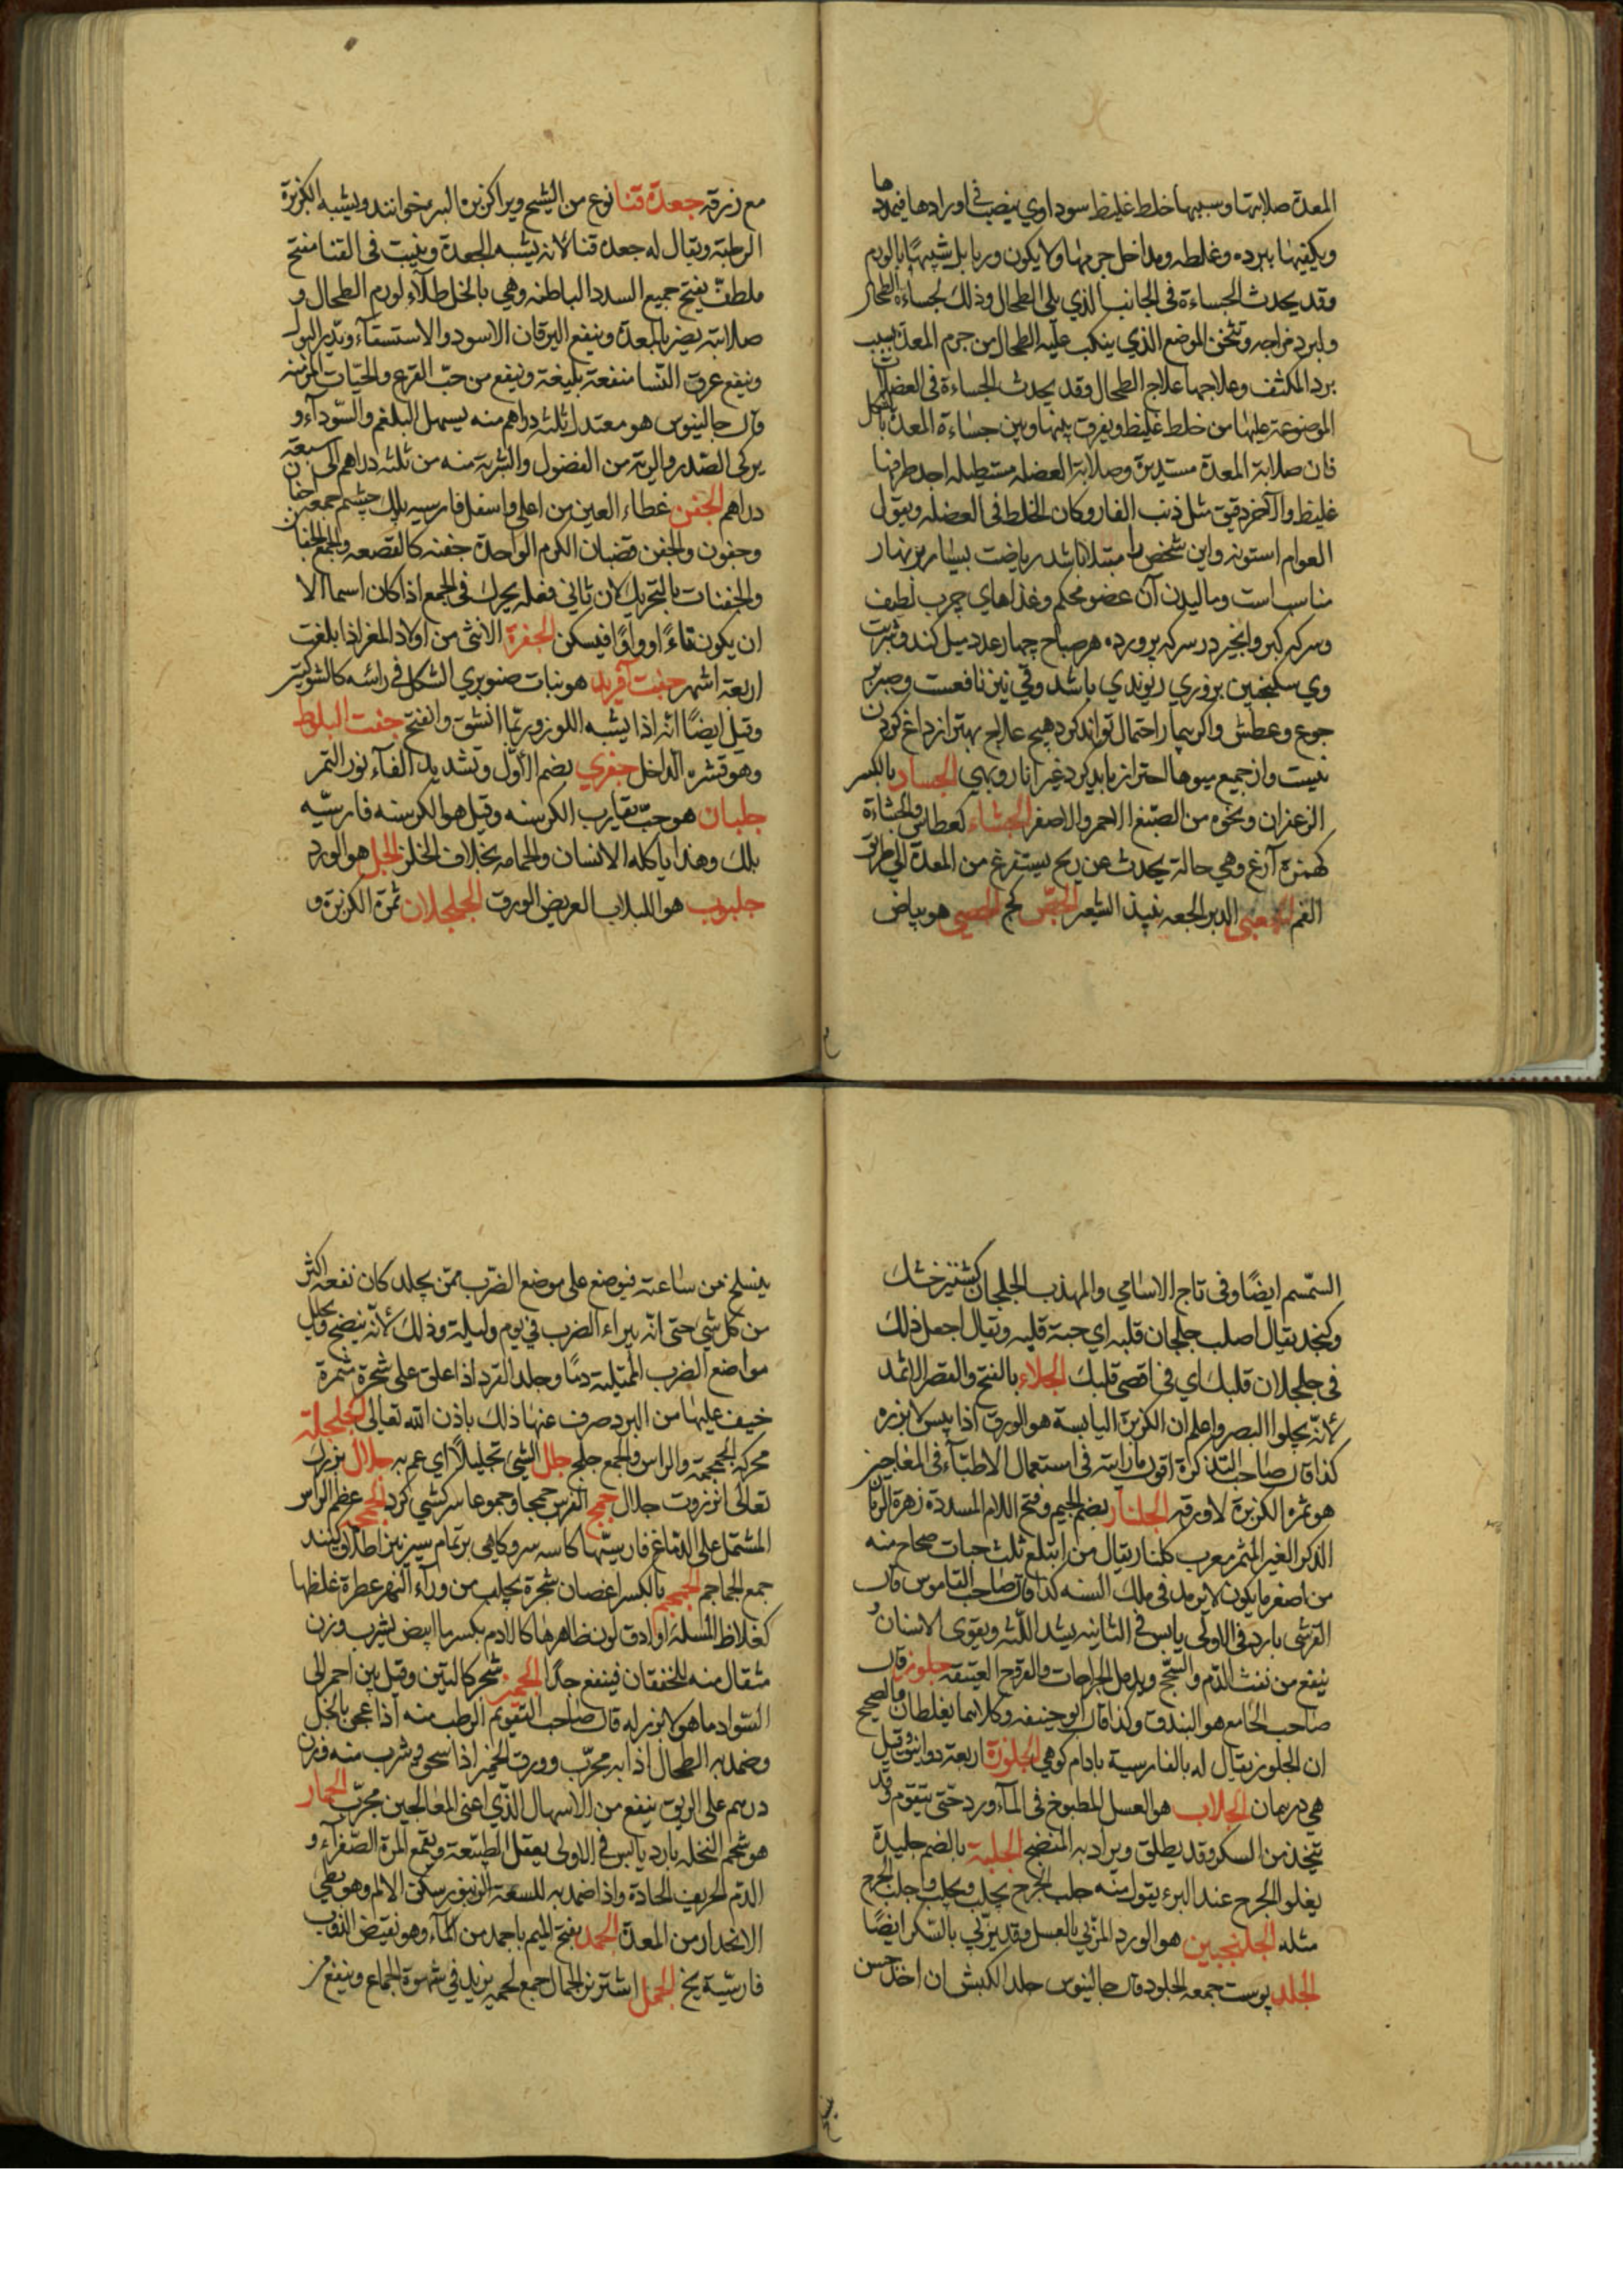 المعدة صلابتها وسببها خلط غليظ سوداوي ينصب في اورادها فيمددها
ويكثفها ببرده وغلظه ومداخل جرمها ولا يكون ورما بل شبيها بالورم
وقد يحدث الجساءة في الجانب الذي يلي الطحال وذلك لجساءة الطحال
ولبرد مزاجه وتخن الموضع الذي ينكب عليه الطحال من جرم المعدة بسبب
برد المكثف وعلاجها علاج الطحال وقد يحدث الجساءة في العضلات
الموضوعة عليها من خلط غليظ ويفرق بينها وبين جساءة المعدة بالشكل
فان صلابة المعدة مستديرة وصلابة العضلة مستطيلة احد طرفيها
غليظ والآخر دقيق مثل ذنب الفار وكان الخلط في العضلة ويقول
العوام استوته واين شخص را مبتلا باشد رياضت بسيار بر نهار
مناسب است وماليدن آن عضو محكم وغذاهاي چرب لطيف
وسركه كبر وانجير در سركه پرورده هر صباح چهار عدد ميل كند وشربت
وي سكنجبين بزوري ريوندي باشد وقي نيز نافعست وصبر بر
جوع وعطش واكر بيمار احتمال تواند كرد هيچ علاج بهتر از داغ كردن
نيست واز جميع ميوها احتراز بايد كرد غير انار وبهي الجساد بالكسر
الزعفران ونحوه من الصبغ الاحمر والاصفر الجشاء كعطاس والجشاءة
كهمزة آرغ وهي حالة يحدث عن ريح يستفرغ من المعدة الي طريق
الفم الجعبي الدبر الجعه نبيذ الشعير الجص كج الجصي هو بياض
مع زرقه جعدة قنا نوع من الشيح ويرا كزبره البير خوانند ويشبه الكزبرة
الرطبة ويقال له جعدة قنا لانه يشبه الجعدة وينبت في القنا مفتح
ملطف يفتح جميع السدد الباطنه وهي بالخل طلاء لورم الطحال و
صلابته يضر بالمعدة وينفع اليرقان الاسود والاستسقاء ويدر البول
وينفع عرق النسا منفعة بليغة وينفع من حب القرع والحيات المزمنه
وقال جالينوس هو معتدل ثلثه دراهم منه يسهل البلغم والسوداء و
يزكي الصدر والرية من الفضول والشربة منه من ثلثه دراهم الى سبعة
دراهم الجفن غطاء العين من اعلى واسفل فارسيه پلك چشم جمعه اجفان
وجفون والجفن قضبان الكرم الواحدة جفنه كالقصعه والجمع الجفان
والجفنات بالتحريك لان ثاني فعله يحرك في الجمع اذا كان اسما الا
ان يكون ياءً او واوًا فيسكن الجفرة الانثى من اولاد المعز اذا بلغت
اربعة اشهر جفت آفريد هو نبات صنوبري الشكل في رائسه كالشوكتين
وقيل ايضًا انه اذا يشبه اللوز وربما انشق وانفتح جفت البلوط
وهو قشره الداخل جفري بضم الاول وتشديد الفاء نور التمر
جلبان هو حب يقارب الكرسنه وقيل هو الكرسنه فارسيه
بلك وهذا ياكله الانسان والحمامه بخلاف الخلر الجل هو الورد
جلبوب هو اللبلاب العريض الورق الجلجلان ثمرة الكزبرة و
السمسم ايضًا وفي تاج الاسامي والمهذب الجلجان كشنيز خشك
وكنجد يقال اصلب جلجان قلبه اي حبة قلبه ويقال اجعل ذلك
في جلجلان قلبك اي في اقصى قلبك الجلاء بالفتح والقصر الاثمد
لانه يجلوا البصر واعلم ان الكزبرة اليابسة هو الورق اذا يبس لا بزره
كذا قال صاحب التذكرة اقول ما رايته في استعمال الاطباء في المعاجين
هو ثمرة الكزبرة لا ورقه الجلنار بضم الجيم وفتح اللام المشددة زهرة الرمان
الذكر الغير المثمر معرب كلنار يقال من ابتلع ثلث حبات صحاح منه
من اصغر ما يكون لا يرمد في ملك السنه كذا قال صاحب القاموس قال
القرشي بارد في الاولى يابس في الثانيه يشد اللثه ويقوى الاسنان و
ينفع من نفث الدم والسحج ويدمل الجراحات والقروح العتيقه جلوز قال
صاحب الجامع هو البندق وكذا قال ابو حنيفه وكلاهما يغلطان والصحيح
ان الجلوز يقال له بالفارسية بادام كوهي الجلوزة اربعة دوانيق وقيل
هي درهمان الجلاب هو العسل المطبوخ في الماء ورد حتى يتقوم وقد
يتخذ من السكر وقد يطلق ويراد به المنضج الجلبة بالضم جليدة
يعلوا الجرح عند البرء يقول منه جلب الجرح يجلب ويجلب واجلب الجرح
مثله الجلنجبين هو الورد المربي بالعسل وقد يربي بالسكر ايضًا
الجلد پوست جمعه الجلود قال جالينوس جلد الكبش ان اخذ حين
ينسلخ من ساعته فيوضع على موضع الضرب ممن يجلد كان نفعه اكثر
من كل شي حتى انه يبراء الضرب في يوم وليلة وذلك لانه ينضج ويحلل
مواضع الضرب الممتلية دمًا وجلد القرد اذا علق على شجرة مثمرة
خيف عليها من البرد صرف عنها ذلك باذن الله تعالى الجلجلة
محركه الجمجمة والراس والجمع جلج جلل الشي تجليلًا اي عم به جلال بزرك
تعالى انزروت جلال جمح الفرس جمحا وجموحا سركشي كرد الجمجمه عظم الراس
المشتمل على الدماغ فارسيتها كاسه سر وكاهي بر تمام سر نيز اطلاق كنند
جمع الجماجم الجمجم بالكسر اغصان شجرة يجلب من وراء النهر عطرة غلظها
كغلاظ المسلة او ادق لون ظاهرها كالادم بكسرها ابيض يشرب وزن
مثقال منه للخفقان فينفع جدًا الجميز شجر كالتين وقيل تين احمر الى
السواد ما هو لا بزر له قال صاحب التقويم الرطب منه اذا عجن بالخل
وضمد به الطحال اذابه مجرب وورق الجميز اذا سحق وشرب منه وزن
درهم على الريق ينفع من الاسهال الذي اعيى المعالجين مجرب الجمار
هو شحم النخله بارد يابس في الاولى يعقل الطبيعة ويقمع المرة الصفراء و
الدم الحريف الحادة واذا ضمد به للسعة الزنبور سكن الالم وهو بطي
الانحدار من المعدة الجمد بفتح الميم ما جمد من الماء وهو نقيض الذوب
فارسيه يخ الجمل اشتر نر الجمال جمع لحمه يزيد في شهوة الجماع وينفع من